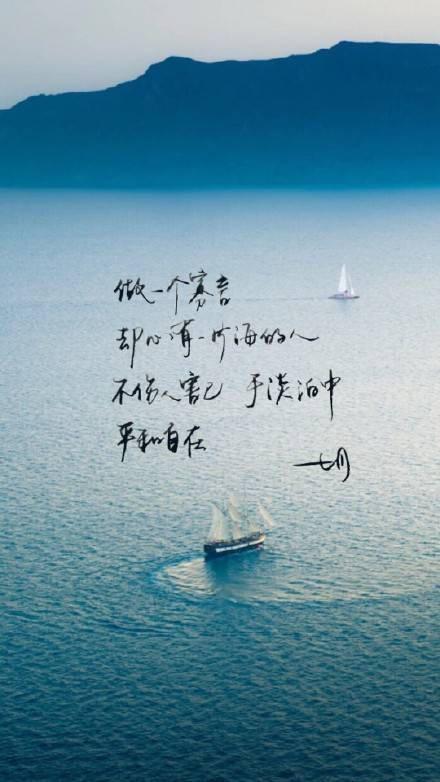 做一个寡言
却心有一片海的人
不伤人害己 于淡泊中
平和自在
七月